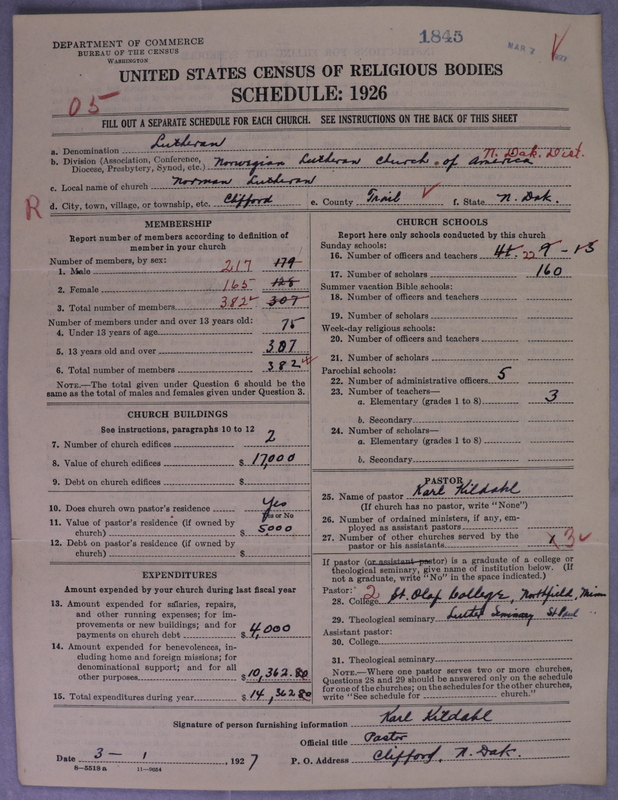 1845
MAR 2 1927
DEPARTMENT OF COMMERCE
BUREAU OF THE CENSUS
WASHINGTON
UNITED STATES CENSUS OF RELIGIOUS BODIES
SCHEDULE: 1926
05
FILL OUT A SEPARATE SCHEDULE FOR EACH CHURCH. SEE INSTRUCTIONS ON THE BACK OF THIS SHEET
a. Denomination Lutheran
b. Division (Association, Conference, Diocese, Presbytery, Synod, etc.) Norwegian Lutheran Church of America N. Dak. Dist.
c. Local name of church Norman Lutheran
R
d. City, town, village, or township, etc. Clifford e. County Trail f. State N. Dak.
MEMBERSHIP
Report number of members according to definition of
member in your church
Number of members, by sex:
1. Male 217 179
2. Female 165 128
3. Total number of members 382 307
Number of members under and over 13 years old:
4. Under 13 years of age 75
5. 13 years old and over 307
6. Total number of members 382
NOTE.—The total given under Question 6 should be
same as the total of males and females given under Question 3.
CHURCH BUILDINGS
See instructions, paragraphs 10 to 12
7. Number of church edifices 2
8. Value of church edifices $ 17,000
9. Debt on church edifices $
10. Does church own pastor's residence Yes
Yes or No
11. Value of pastor's residence (if owned by
church) $ 5000
12. Debt on pastor's residence (if owned by
church) $
EXPENDITURES
Amount expended by your church during last fiscal year
13. Amount expended for salaries, repairs,
and other running expenses; for im-
provements or new buildings; and for
payments on church debt $ 4,000
14. Amount expended for benevolences, in-
cluding home and foreign missions; for
denominational support; and for all
other purposes $ 10,362.80
15. Total expenditures during year $ 14,362.80
CHURCH SCHOOLS
Report here only schools conducted by this church
Sunday schools:
16. Number of officers and teachers 22 9-13
17. Number of scholars 160
Summer vacation Bible schools:
18. Number of officers and teachers
19. Number of scholars
Week-day religious schools:
20. Number of officers and teachers
21. Number of scholars
Parochial schools:
22. Number of administrative officers 5
23. Number of teachers—
a. Elementary (grades 1 to 8) 3
b. Secondary
24. Number of scholars—
a. Elementary (grades 1 to 8)
b. Secondary
PASTOR
25. Name of pastor Karl Kildahl
(If church has no pastor, write "None")
26. Number of ordained ministers, if any, em-
ployed as assistant pastors
27. Number of other churches served by the
pastor or his assistants 3
If pastor (or assistant pastor) is a graduate of a college or
theological seminary, give name of institution below. (If
not a graduate, write "No" in the space indicated.)
Pastor: 2
28. College St. Olaf College, Northfield, Minn
29. Theological seminary Luther Seminary St Paul
Assistant pastor:
30. College
31. Theological seminary
NOTE.—Where one pastor serves two or more churches,
Questions 28 and 29 should be answered only on the schedule
for one of the churches; on the schedules for the other churches,
write "See schedule for church."
Signature of person furnishing information Karl Kildahl
Official title Pastor
Date 3 – 1, 1927 P. O. Address Clifford, N. Dak.
8—5518a 11—9664